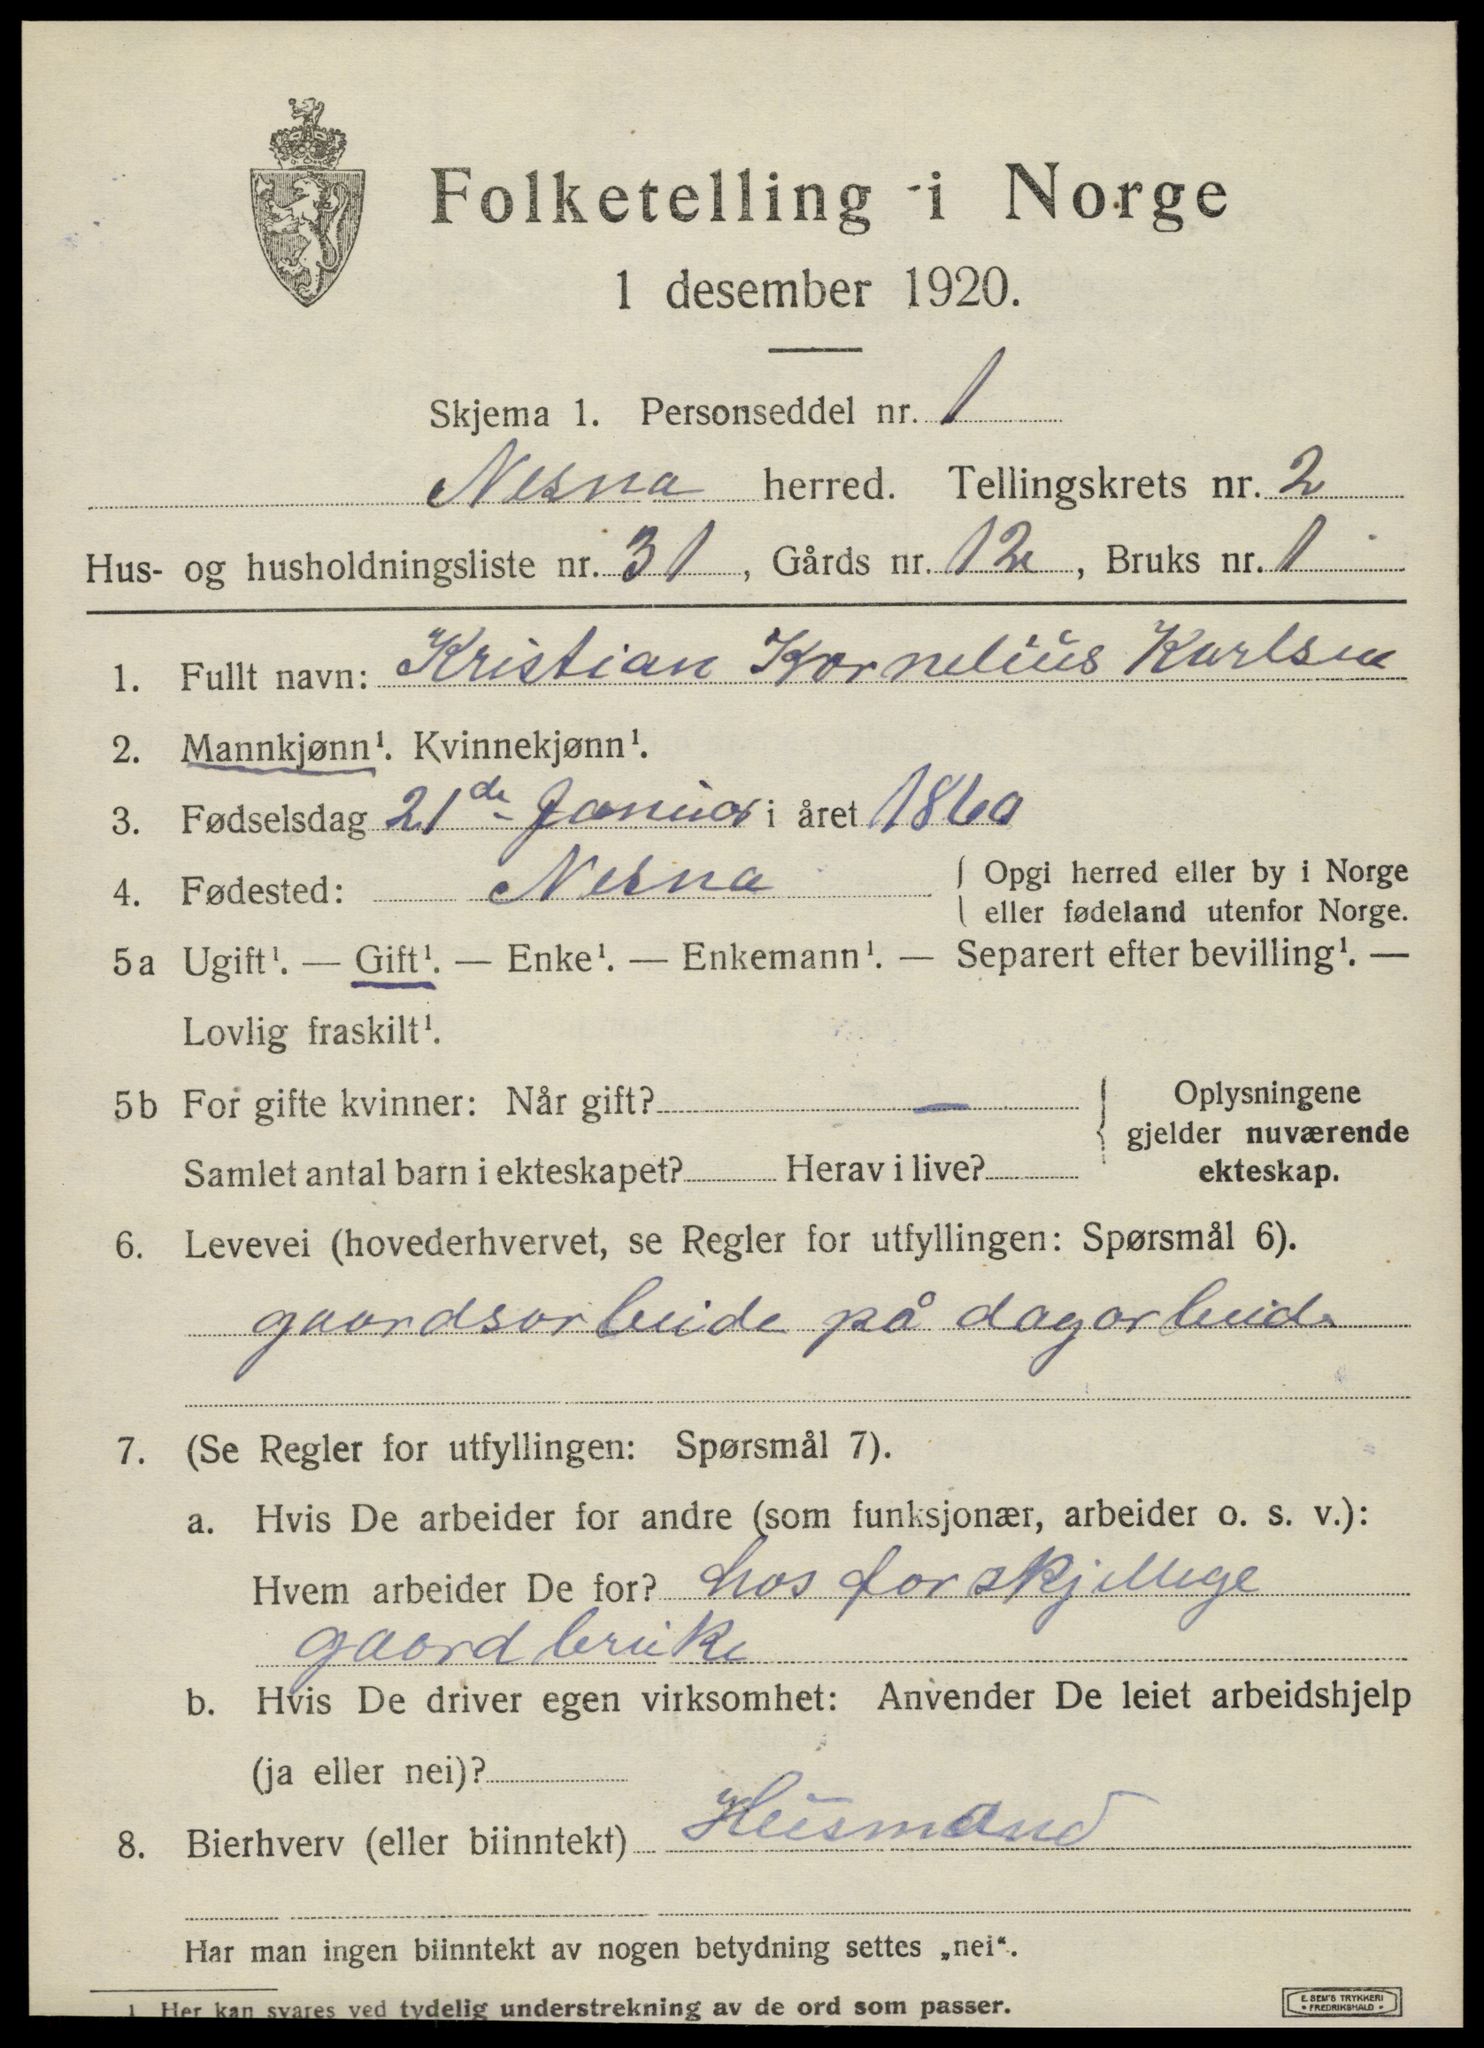 Folketelling i Norge
1 desember 1920.
Skjema 1. Personseddel nr. 1
Nesna herred. Tellingskrets nr. 2
Hus- og husholdningsliste nr. 31, Gårds nr. 12, Bruks nr. 1
1. Fullt navn: Kristian Kornelius Karlsen
2. Mannkjønn¹. Kvinnekjønn¹.
3. Fødselsdag 21de Januar i året 1860
4. Fødested: Nesna { Opgi herred eller by i Norge
eller fødeland utenfor Norge.
5a Ugift¹. — Gift¹. — Enke¹. — Enkemann¹. — Separert efter bevilling¹. —
Lovlig fraskilt¹.
5b For gifte kvinner: Når gift? — { Oplysningene
gjelder nuværende
Samlet antal barn i ekteskapet? Herav i live? ekteskap.
6. Levevei (hovederhvervet, se Regler for utfyllingen: Spørsmål 6).
gaardsarbeide på dagarbeide
7. (Se Regler for utfyllingen: Spørsmål 7).
a. Hvis De arbeider for andre (som funksjonær, arbeider o. s. v.):
Hvem arbeider De for? hos forskjellige
gaardbruke
b. Hvis De driver egen virksomhet: Anvender De leiet arbeidshjelp
(ja eller nei)?
8. Bierhverv (eller biinntekt) Husmand
Har man ingen biinntekt av nogen betydning settes „nei“.
1 Her kan svares ved tydelig understrekning av de ord som passer.
E. SEM'S TRYKKERI
• FREDRIKSHALD •